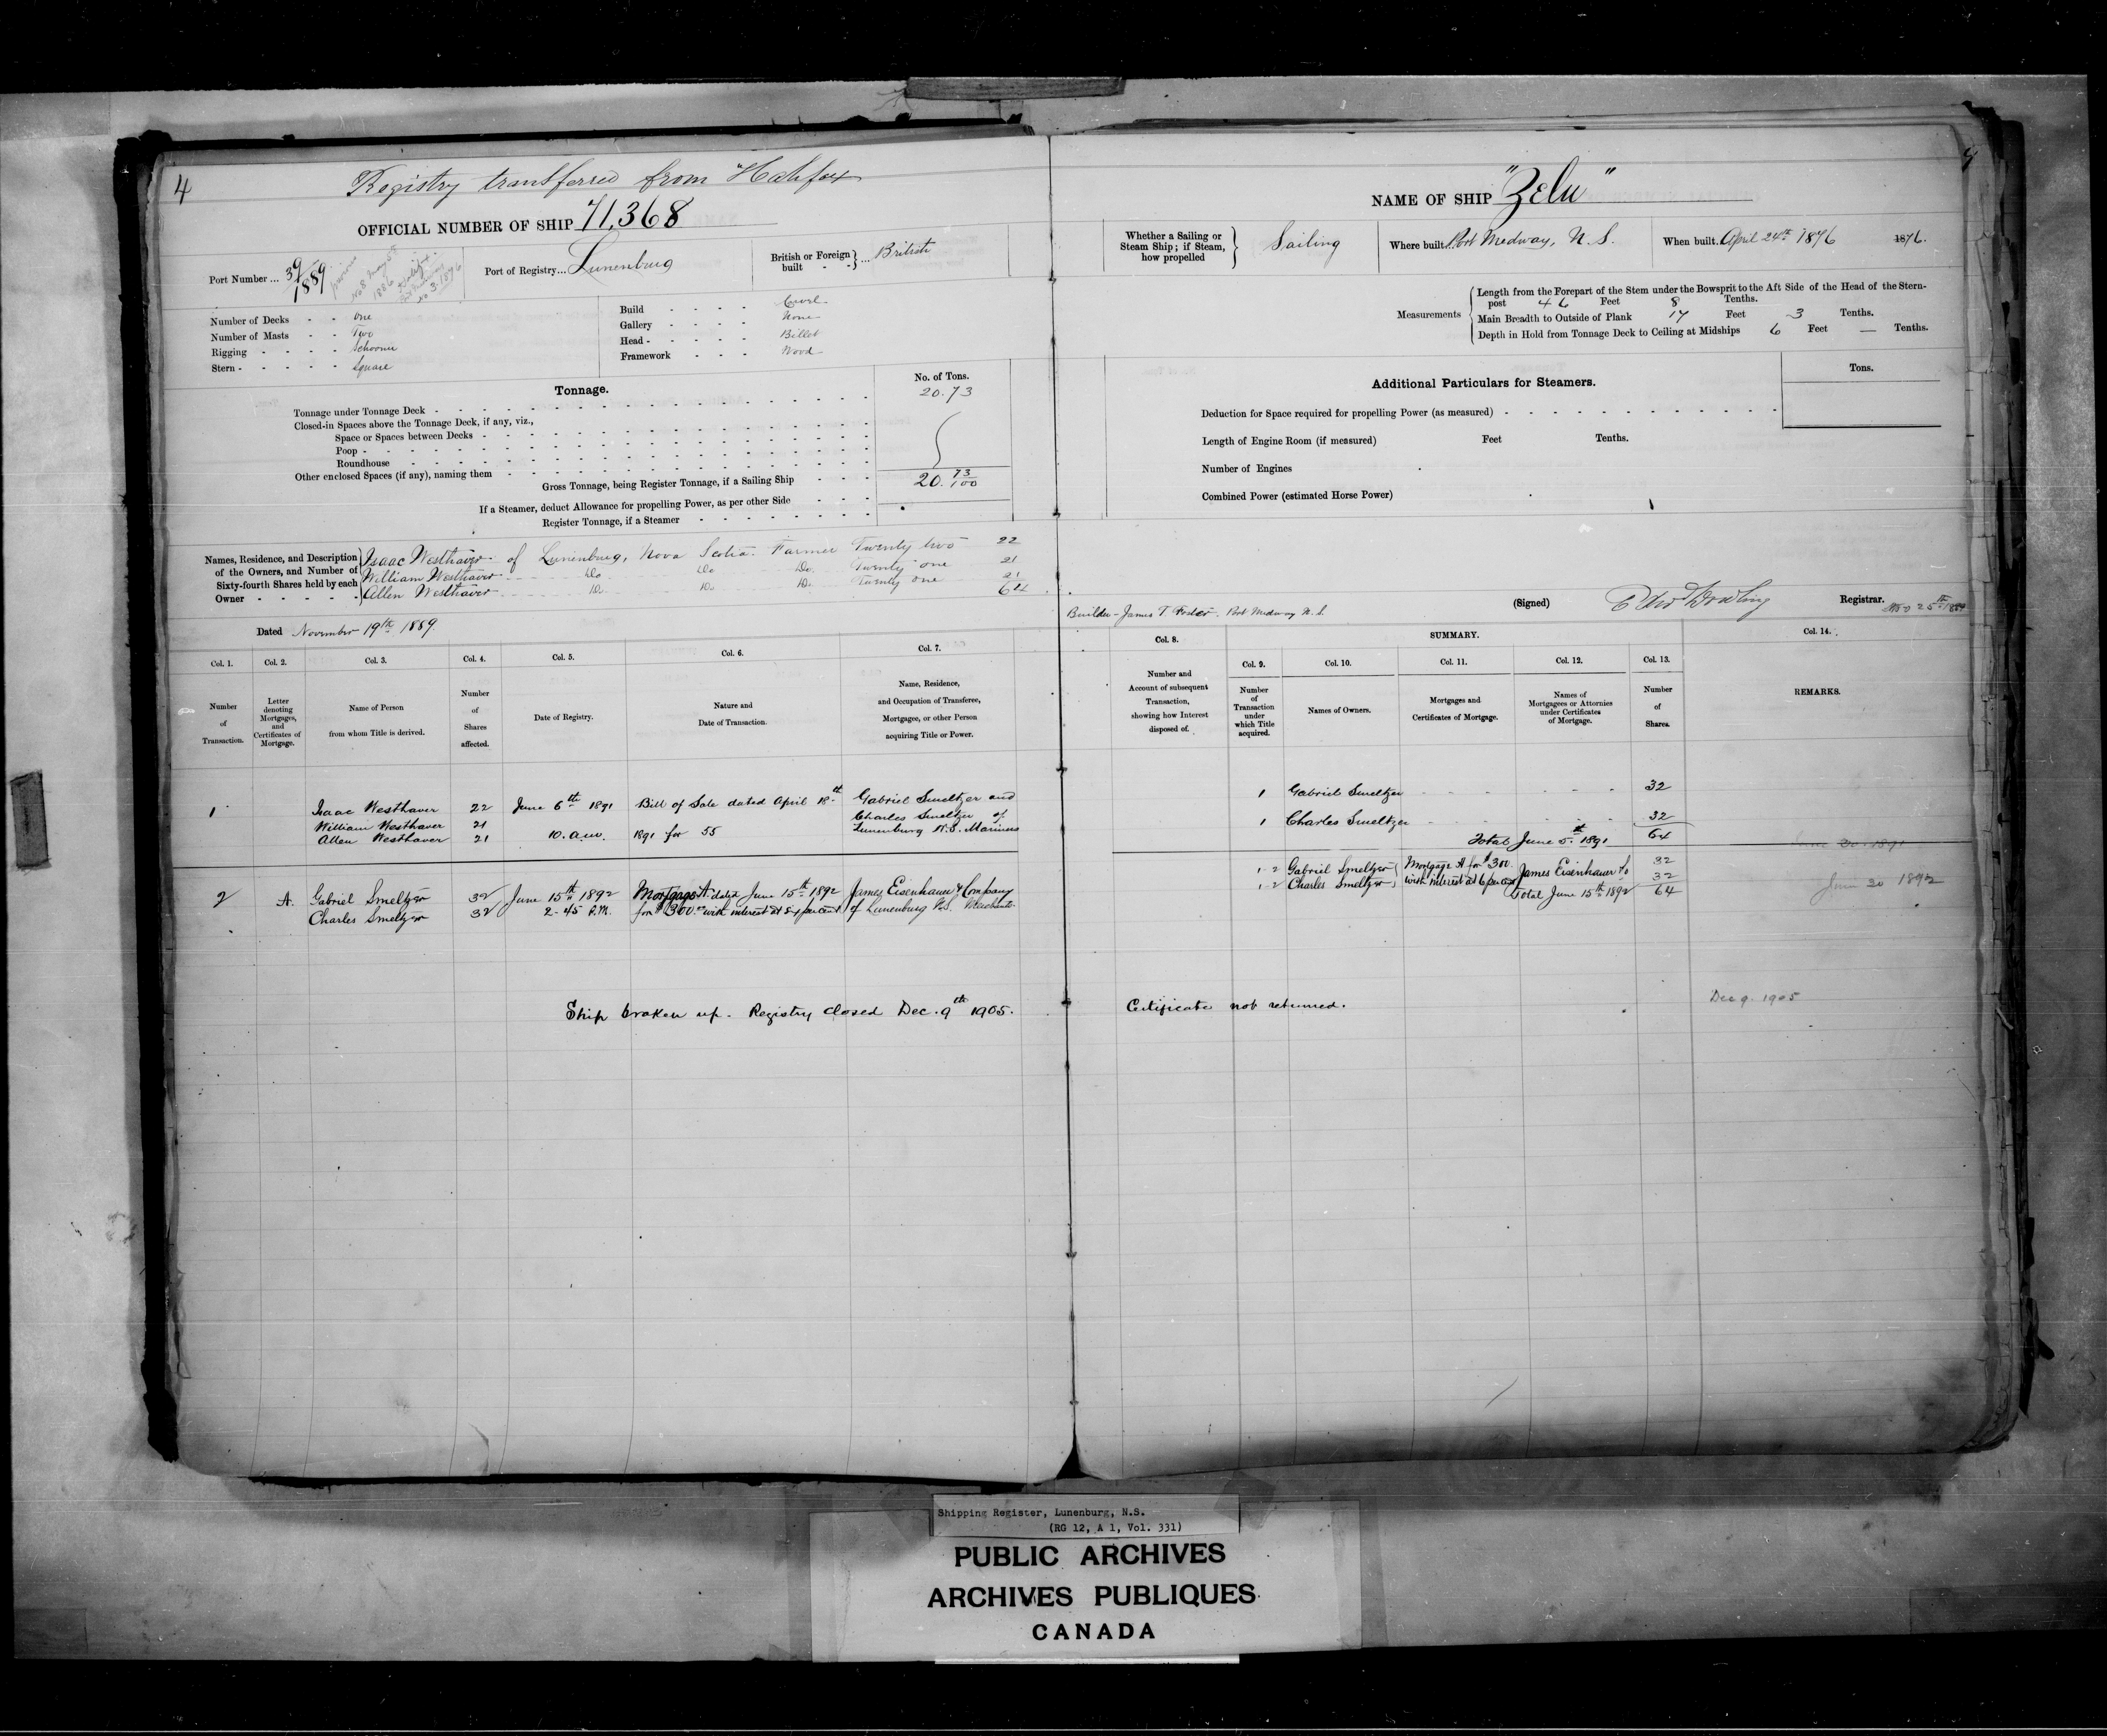 4
Registry transferred from Halifax
OFFICIAL NUMBER OF SHIP 71,368
Port Number ... 39/1889
previous No 8 May 5th 1886 Halifax
No 3. 1876
Port of Registry... Lunenburg
British or Foreign built - - } ... British
Number of Decks - - One
Number of Masts - - Two
Rigging - - - - - Schooner
Stern - - - - - - Square
Build - - - - Carvel
Gallery - - - - None
Head - - - - - Billet
Framework - - - Wood
Tonnage.
No. of Tons.
Tonnage under Tonnage Deck - 20.73
Closed-in Spaces above the Tonnage Deck, if any, viz.,
Space or Spaces between Decks -
Poop -
Roundhouse -
Other enclosed Spaces (if any), naming them -
Gross Tonnage, being Register Tonnage, if a Sailing Ship - - - 20. 73/100
If a Steamer, deduct Allowance for propelling Power, as per other Side - - -
Register Tonnage, if a Steamer -
Names, Residence, and Description of the Owners, and Number of Sixty-fourth Shares held by each Owner - - - - -
Isaac Westhaver of Lunenburg, Nova Scotia. Farmer Twenty two 22
William Westhaver Do Do Do. Twenty one 21
Allen Westhaver Do. Do Do. Twenty one 21
64
Dated November 19th 1889.
NAME OF SHIP "Zelu"
Whether a Sailing or Steam Ship; if Steam, how propelled } Sailing
Where built. Port Medway, N.S.
When built. April 24th 1876 1876.
Measurements
Length from the Forepart of the Stem under the Bowsprit to the Aft Side of the Head of the Stern-
post 46 Feet 8 Tenths.
Main Breadth to Outside of Plank 17 Feet 3 Tenths.
Depth in Hold from Tonnage Deck to Ceiling at Midships 6 Feet — Tenths.
Additional Particulars for Steamers.
Tons.
Deduction for Space required for propelling Power (as measured) -
Length of Engine Room (if measured) Feet Tenths.
Number of Engines
Combined Power (estimated Horse Power)
Builder - James T Foster. Port Medway N.S.
(Signed) Edwd Dowling Registrar.
Col. 1. Number of Transaction.
Col. 2. Letter denoting Mortgages, and Certificates of Mortgage.
Col. 3. Name of Person from whom Title is derived.
Col. 4. Number of Shares affected.
Col. 5. Date of Registry.
Col. 6. Nature and Date of Transaction.
Col. 7. Name, Residence, and Occupation of Transferee, Mortgagee, or other Person acquiring Title or Power.
Col. 8. Number and Account of subsequent Transaction, showing how Interest disposed of.
SUMMARY.
Col. 9. Number of Transaction under which Title acquired.
Col. 10. Names of Owners.
Col. 11. Mortgages and Certificates of Mortgage.
Col. 12. Names of Mortgagees or Attornies under Certificates of Mortgage.
Col. 13. Number of Shares.
Col. 14. REMARKS.
1 Isaac Westhaver 22 June 6th 1891 Bill of Sale dated April 18th Gabriel Smeltzer and
William Westhaver 21 Charles Smeltzer of
Allen Westhaver 21 10. a.m. 1891 for 55 Lunenburg N.S. Mariners
1 Gabriel Smeltzer 32
1 Charles Smeltzer 32
Total June 5th 1891 64
June 30 1891
2 A. Gabriel Smeltzer 32 June 15th 1892 Mortgage A. dated June 15th 1892 James Eisenhauer & Company
Charles Smeltzer 32 2-45 P.M. for $300.00 with interest at 6 per cent of Lunenburg N.S. Merchants
1-2 Gabriel Smeltzer Mortgage A for $300 32
1-2 Charles Smeltzer with interest at 6 per cent James Eisenhauer & Co 32
Total June 15th 1892 64
June 30 1892
Ship broken up. Registry closed Dec. 9th 1905. Certificate not returned.
Dec 9. 1905
Shipping Register, Lunenburg, N.S.
(RG 12, A 1, Vol. 331)
PUBLIC ARCHIVES
ARCHIVES PUBLIQUES
CANADA